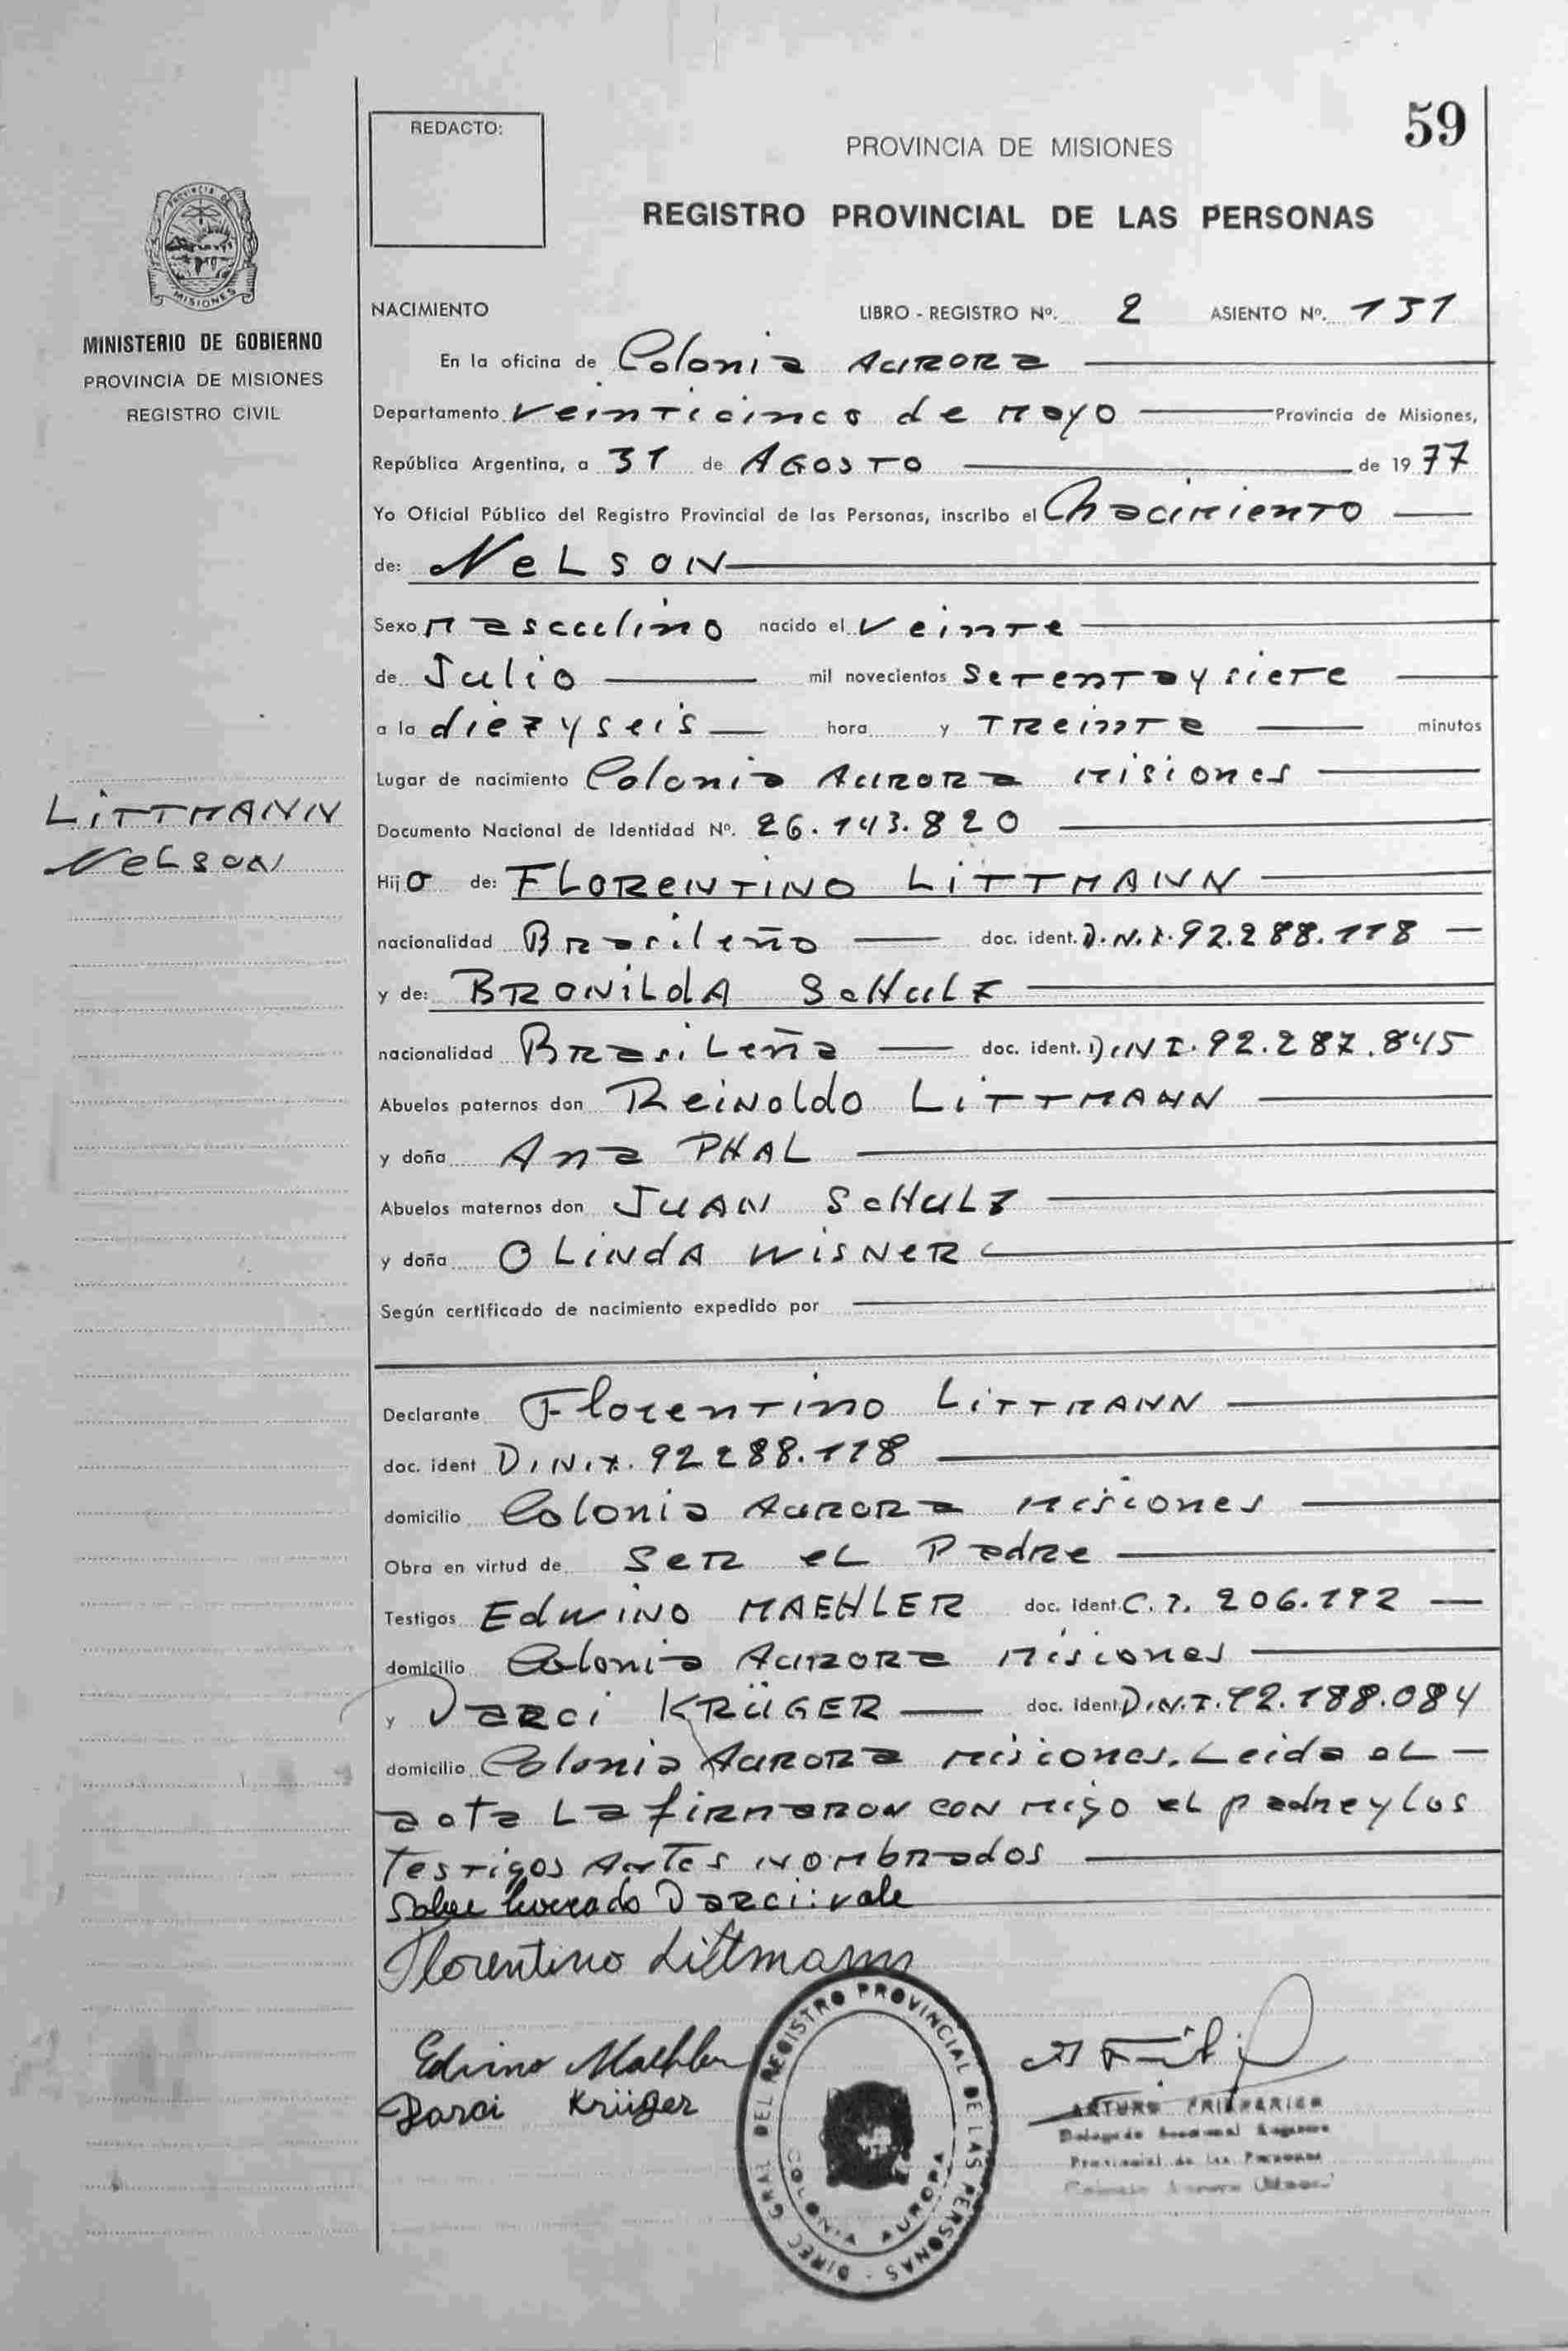 59
REDACTO:
PROVINCIA DE MISIONES
REGISTRO PROVINCIAL DE LAS PERSONAS
PROVINCIA DE
MISIONES
MINISTERIO DE GOBIERNO
PROVINCIA DE MISIONES
REGISTRO CIVIL
NACIMIENTO LIBRO - REGISTRO Nº. 2 ASIENTO Nº. 131
En la oficina de Colonia AuRORa
Departamento Veinticinco de Mayo Provincia de Misiones,
República Argentina, a 31 de AGOSTO de 1977
Yo Oficial Público del Registro Provincial de las Personas, inscribo el Nacimiento
de: NeLSON
Sexo Masculino nacido el Veinte
de Julio mil novecientos Setenta y siete
a la diez y seis hora y TReinta minutos
Lugar de nacimiento Colonia AuRORa Misiones
LiTTMANN
NeLSON
Documento Nacional de Identidad Nº. 26.143.820
Hijo de: FLORENTINO LiTTMANN
nacionalidad BRasileño doc. ident. D.N.I. 92.288.118
y de: BRONiLdA ScHuLZ
nacionalidad BRasiLeña doc. ident. D.N.I. 92.287.845
Abuelos paternos don ReiNoldo LiTTMANN
y doña Ana PHAL
Abuelos maternos don JUAN ScHuLZ
y doña OLiNdA WiSNeR
Según certificado de nacimiento expedido por
Declarante Florentino LiTTMANN
doc. ident D.N.I. 92 288.118
domicilio Colonia AuRORa Misiones
Obra en virtud de SeR eL PadRe
Testigos EdwiNO MAEHLER doc. ident. C.I. 206.192
domicilio Colonia AuRORa Misiones
y DaRci KRÜGER doc. ident. D.N.I. 92.188.084
domicilio Colonia AuRORa Misiones. Leida eL
acta La fiRmaRON CON migo eL padRe y Los
Testigos AnTes NOmbRados
Sobre borrado DaRci: vale
Florentino Littmann
Edvino Maehler
Darci Krüger
DIREC. GRAL DEL REGISTRO PROVINCIAL DE LAS PERSONAS
COLONIA AURORA
ARTURO
Provincial de las Personas